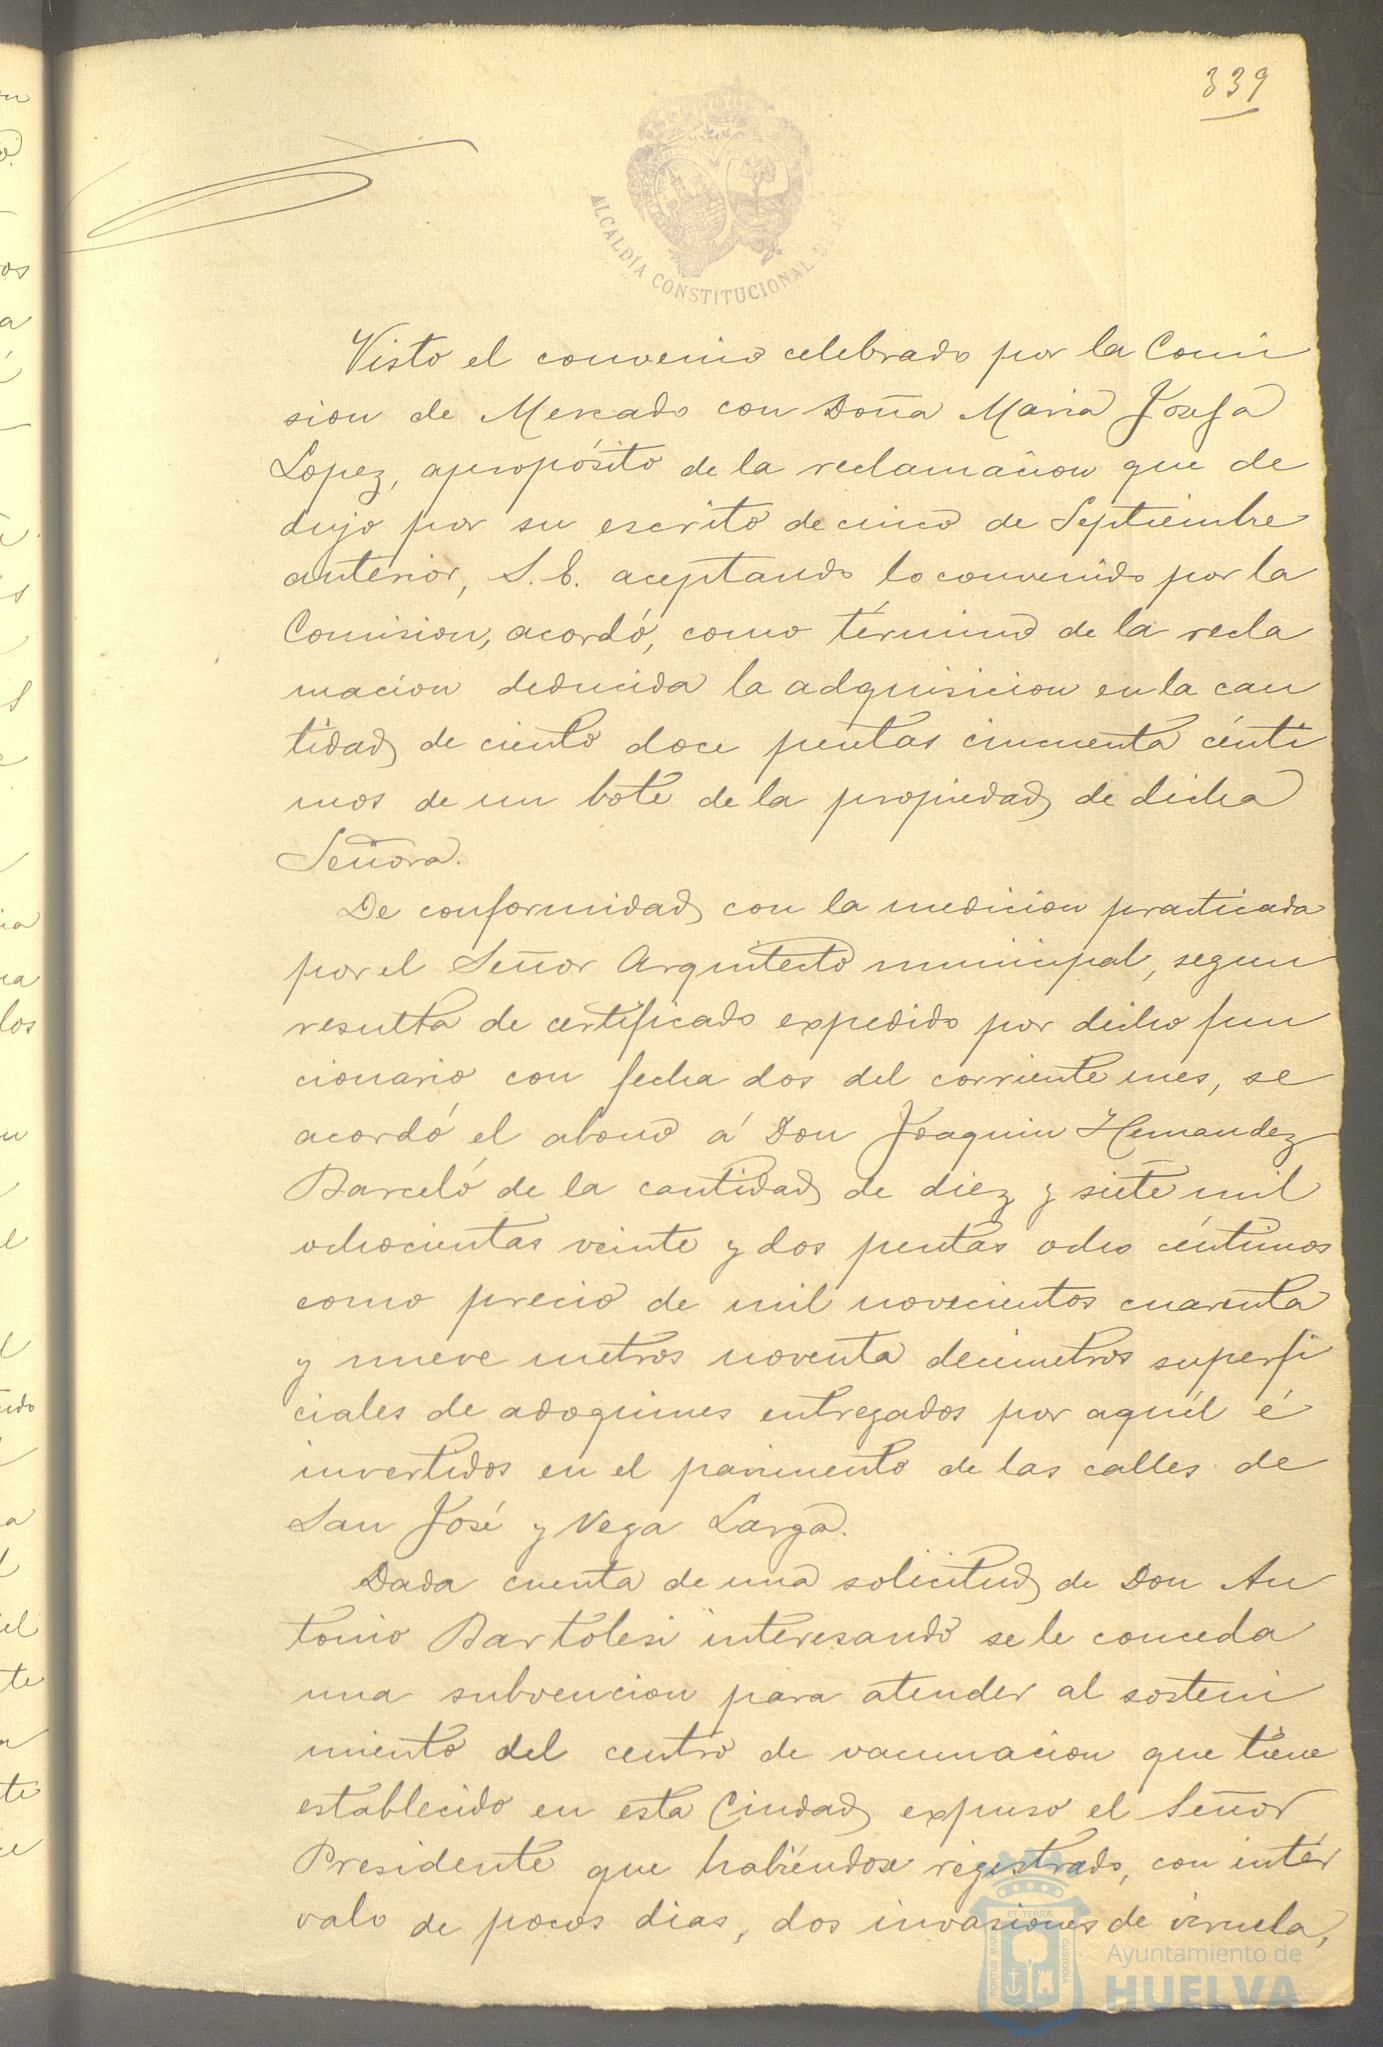 339
ALCALDÍA CONSTITUCIONAL
Visto el convenio celebrado por la Comi
sion de Mercado con Doña Maria Josefa
Lopez, apropósito de la reclamacion que de
dujo por su escrito de cinco de Septiembre
anterior, S. E. aceptando lo convenido por la
Comision, acordó, como término de la recla
macion deducida la adquisicion en la can
tidad de ciento doce pesetas cincuenta cénti
mos de un bote de la propiedad de dicha
Señora.
De conformidad con la medicion practicada
por el Señor Arquitecto municipal, segun
resulta de certificado expedido por dicho fun
cionario con fecha dos del corriente mes, se
acordó el abono á Don Joaquin Hernandez
Barceló de la cantidad de diez y siete mil
ochocientas veinte y dos pesetas ocho céntimos
como precio de mil novecientos cuarenta
y nueve metros noventa decimetros superfi
ciales de adoquines entregados por aquél é
invertidos en el pavimento de las calles de
San José y Vega Larga.
Dada cuenta de una solicitud de Don An
tonio Bartolesi interesando se le conceda
una subvencion para atender al sosteni
miento del centro de vacunacion que tiene
establecido en esta Ciudad, expuso el Señor
Presidente que habiéndose registrado, con intér
valo de pocos dias, dos invasiones de viruela,
PORTUS MARIS ET TERRÆ CUSTODIA
Ayuntamiento de
HUELVA